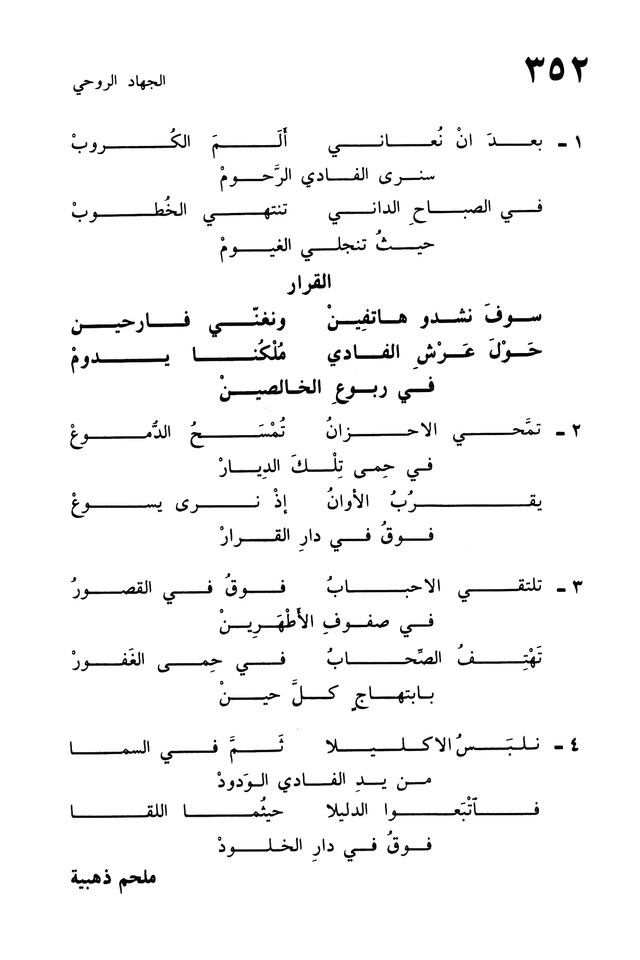 ٣٥٢
الجهاد الروحي
١ - بعدَ انْ نُعاني أَلَمَ الكُروبْ
سنرى الفادي الرَّحومْ
في الصباحِ الداني تنتهي الخُطوبْ
حيثُ تنجلي الغيومْ
القرار
سوفَ نشدو هاتفِينْ ونغنّي فارحين
حَوْلَ عَرْشِ الفادي مُلْكُنا يدومْ
في ربوعِ الخالصينْ
٢ - تمَّحي الاحزانُ تُمْسَحُ الدُّموعْ
في حِمى تِلْكَ الدِيارْ
يقرُبُ الأوانُ إذْ نرى يسوعْ
فوقُ في دارِ القرارْ
٣ - تلتقي الاحبابُ فوقُ في القصورُ
في صفوفِ الأَطْهَرِينْ
تَهْتِفُ الصِّحابُ في حِمى الغَفورْ
بابتهاجٍ كلَّ حينْ
٤ - نلبَسُ الاكليلا ثَمَّ في السما
من يدِ الفادي الوَدودْ
فٱتْبَعوا الدليلا حيثُما اللقا
فوقُ في دارِ الخلودْ
ملحم ذهبية